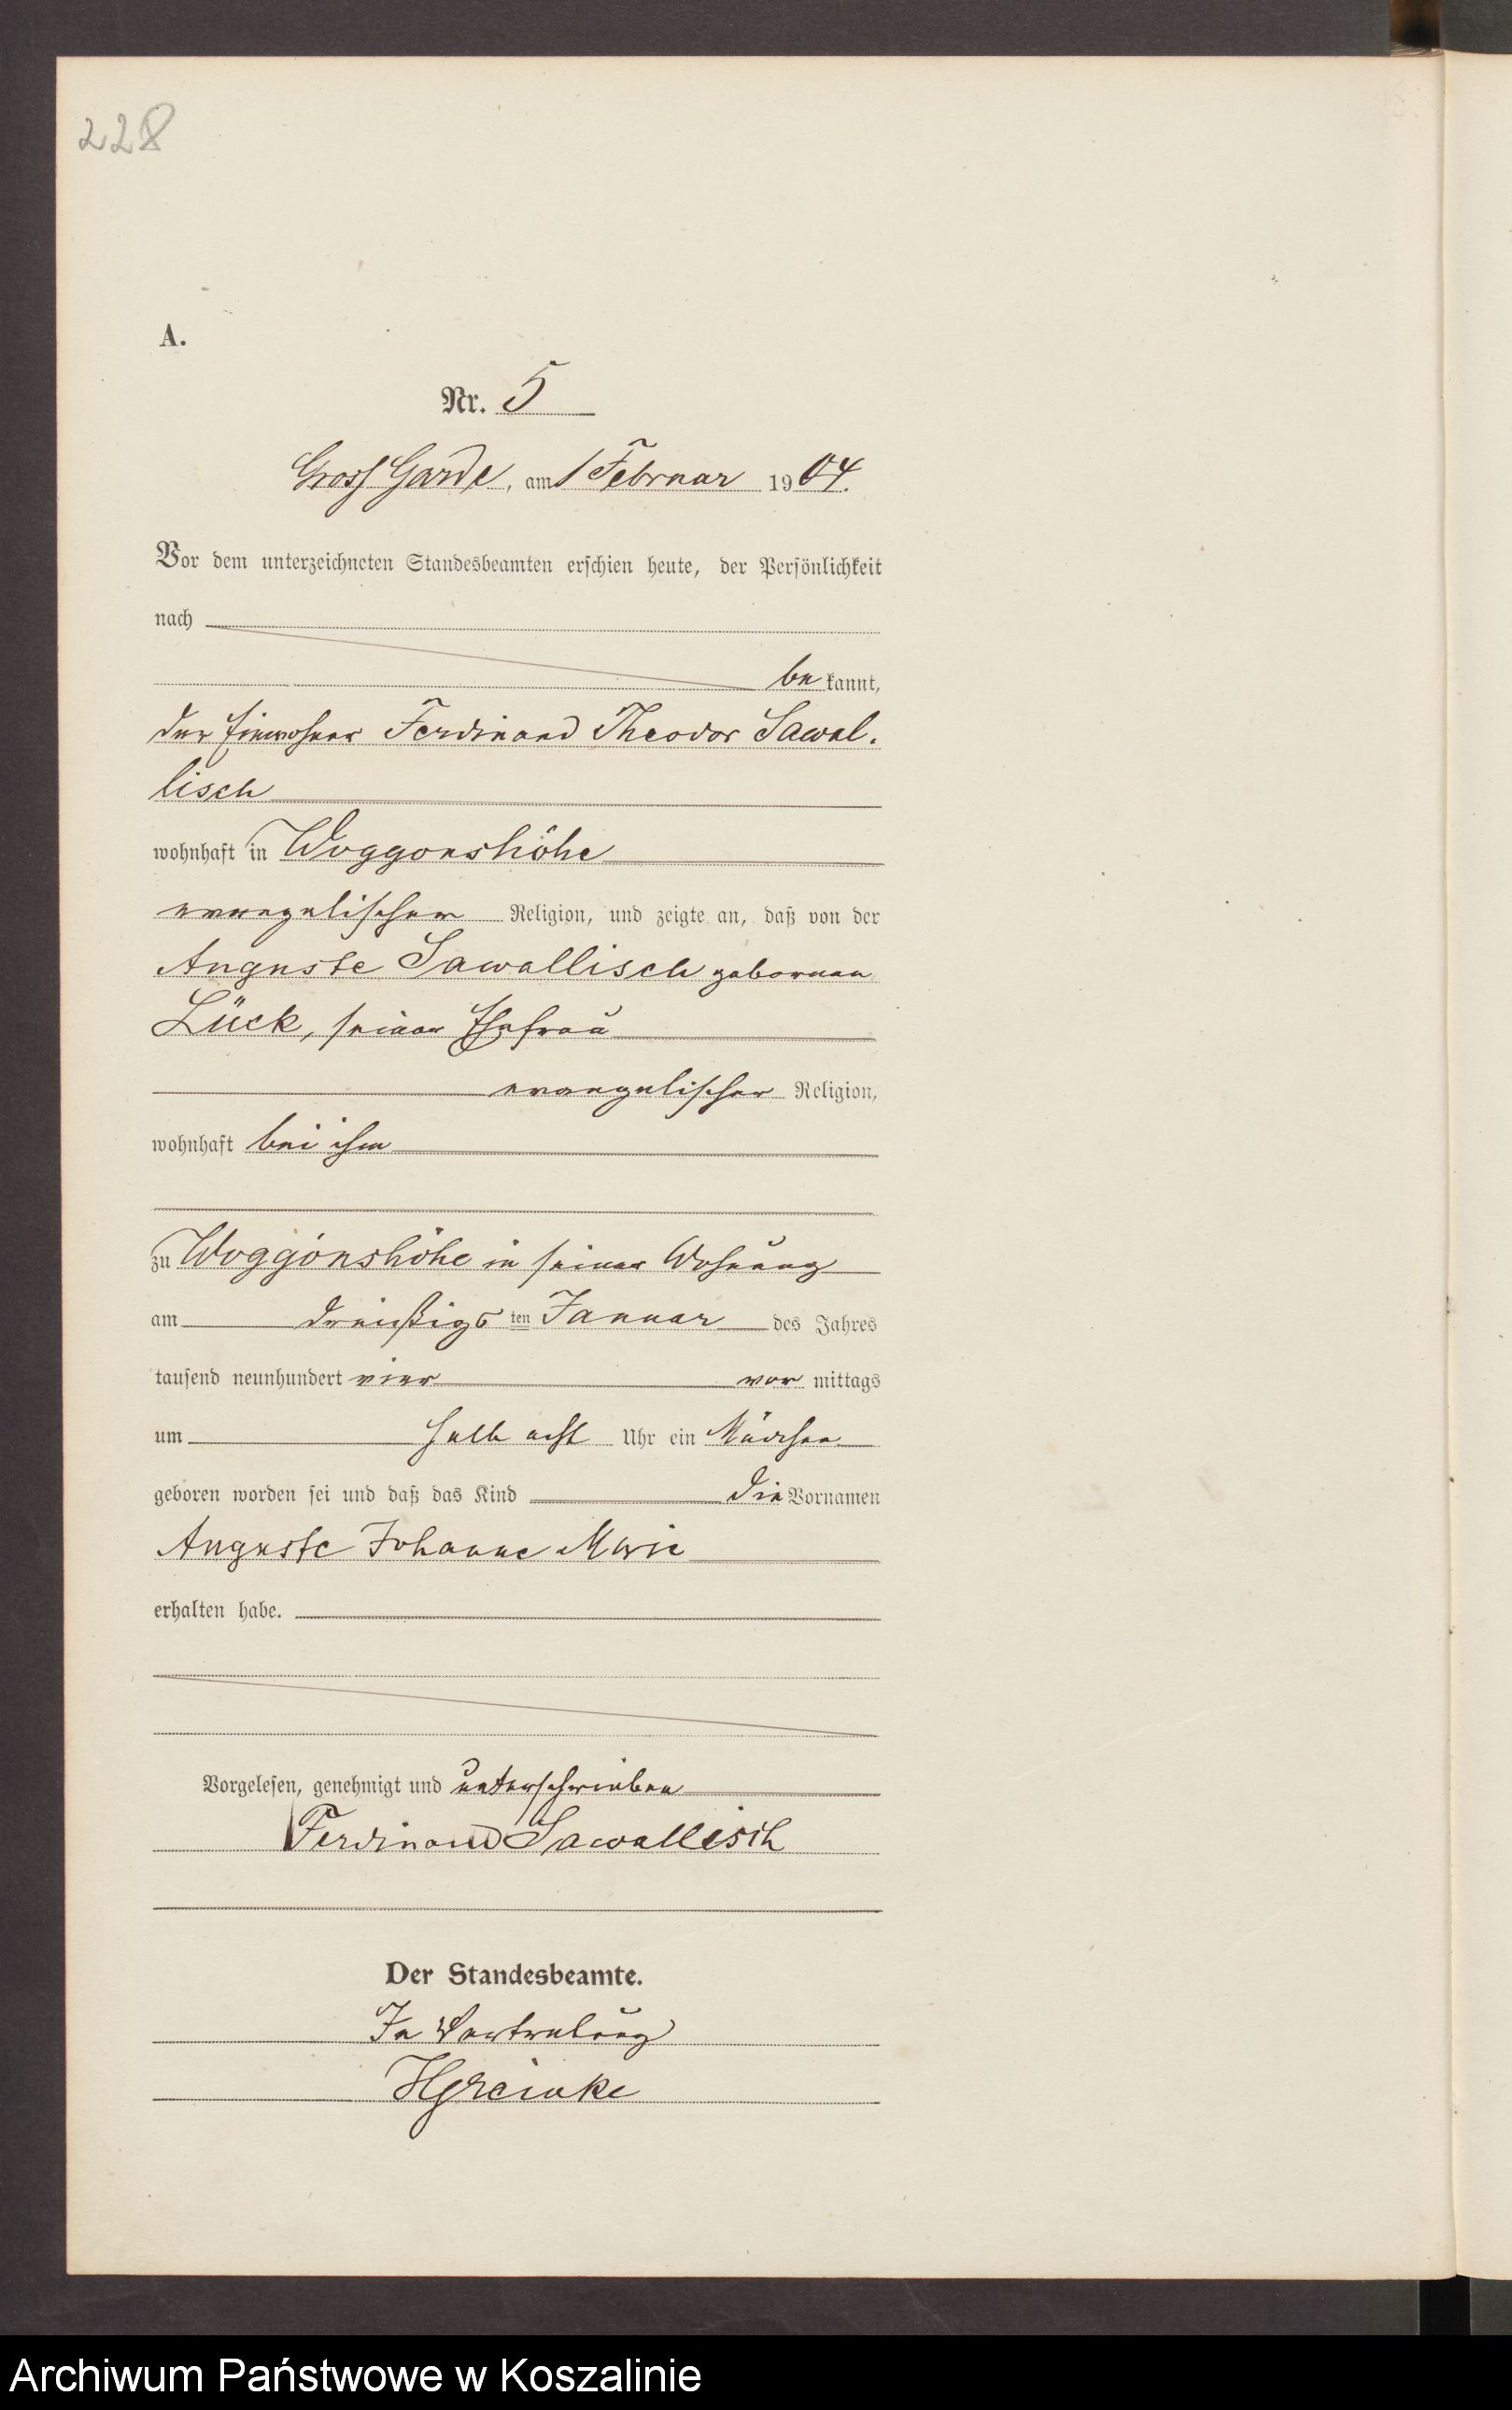 228
A.
Nr. 5
Gross Garde, am 1 Februar 1904.
Vor dem unterzeichneten Standesbeamten erschien heute, der Persönlichkeit
nach
be kannt,
der Einwohner Ferdinand Theodor Sawal-
lisch
wohnhaft in Woggonshöhe
evangelischer Religion, und zeigte an, daß von der
Auguste Sawallisch geborenen
Lück, seiner Ehefrau
evangelischer Religion,
wohnhaft bei ihm
zu Woggonshöhe in seiner Wohnung
am dreißigs ten Januar des Jahres
tausend neunhundert vier vor mittags
um halb acht Uhr ein Mädchen
geboren worden sei und daß das Kind die Vornamen
Auguste Johanne Marie
erhalten habe.
Vorgelesen, genehmigt und unterschrieben
Ferdinand Sawallisch
Der Standesbeamte.
In Vertretung
Archiwum Państwowe w Koszalinie